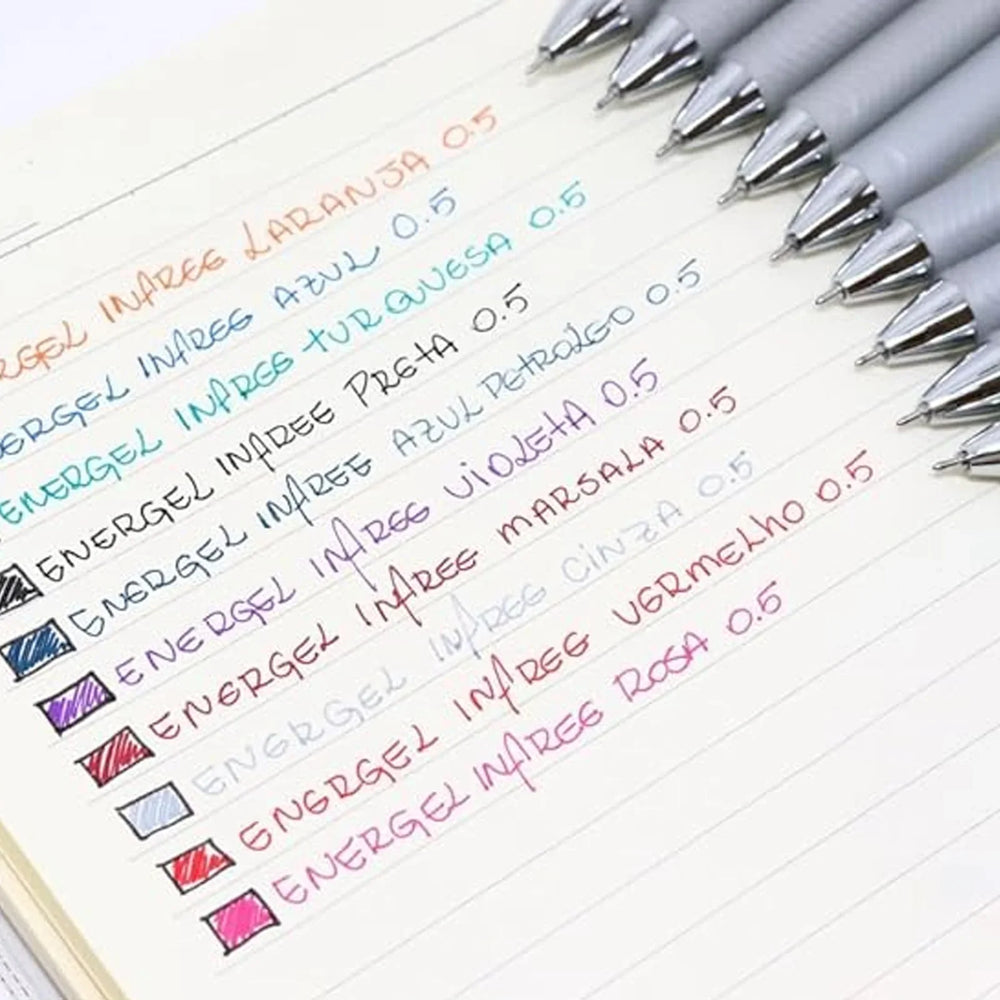 RGEL INFREE LARANJA 0.5
ERGEL INFREE AZUL 0.5
ENERGEL INFREE TURQUESA 0.5
ENERGEL INFREE PRETA 0.5
ENERGEL INFREE AZUL PETROLEO 0.5
ENERGEL INFREE VIOLETA 0.5
ENERGEL INFREE MARSALA 0.5
ENERGEL INFREE CINZA 0.5
ENERGEL INFREE VERMELHO 0.5
ENERGEL INFREE ROSA 0.5